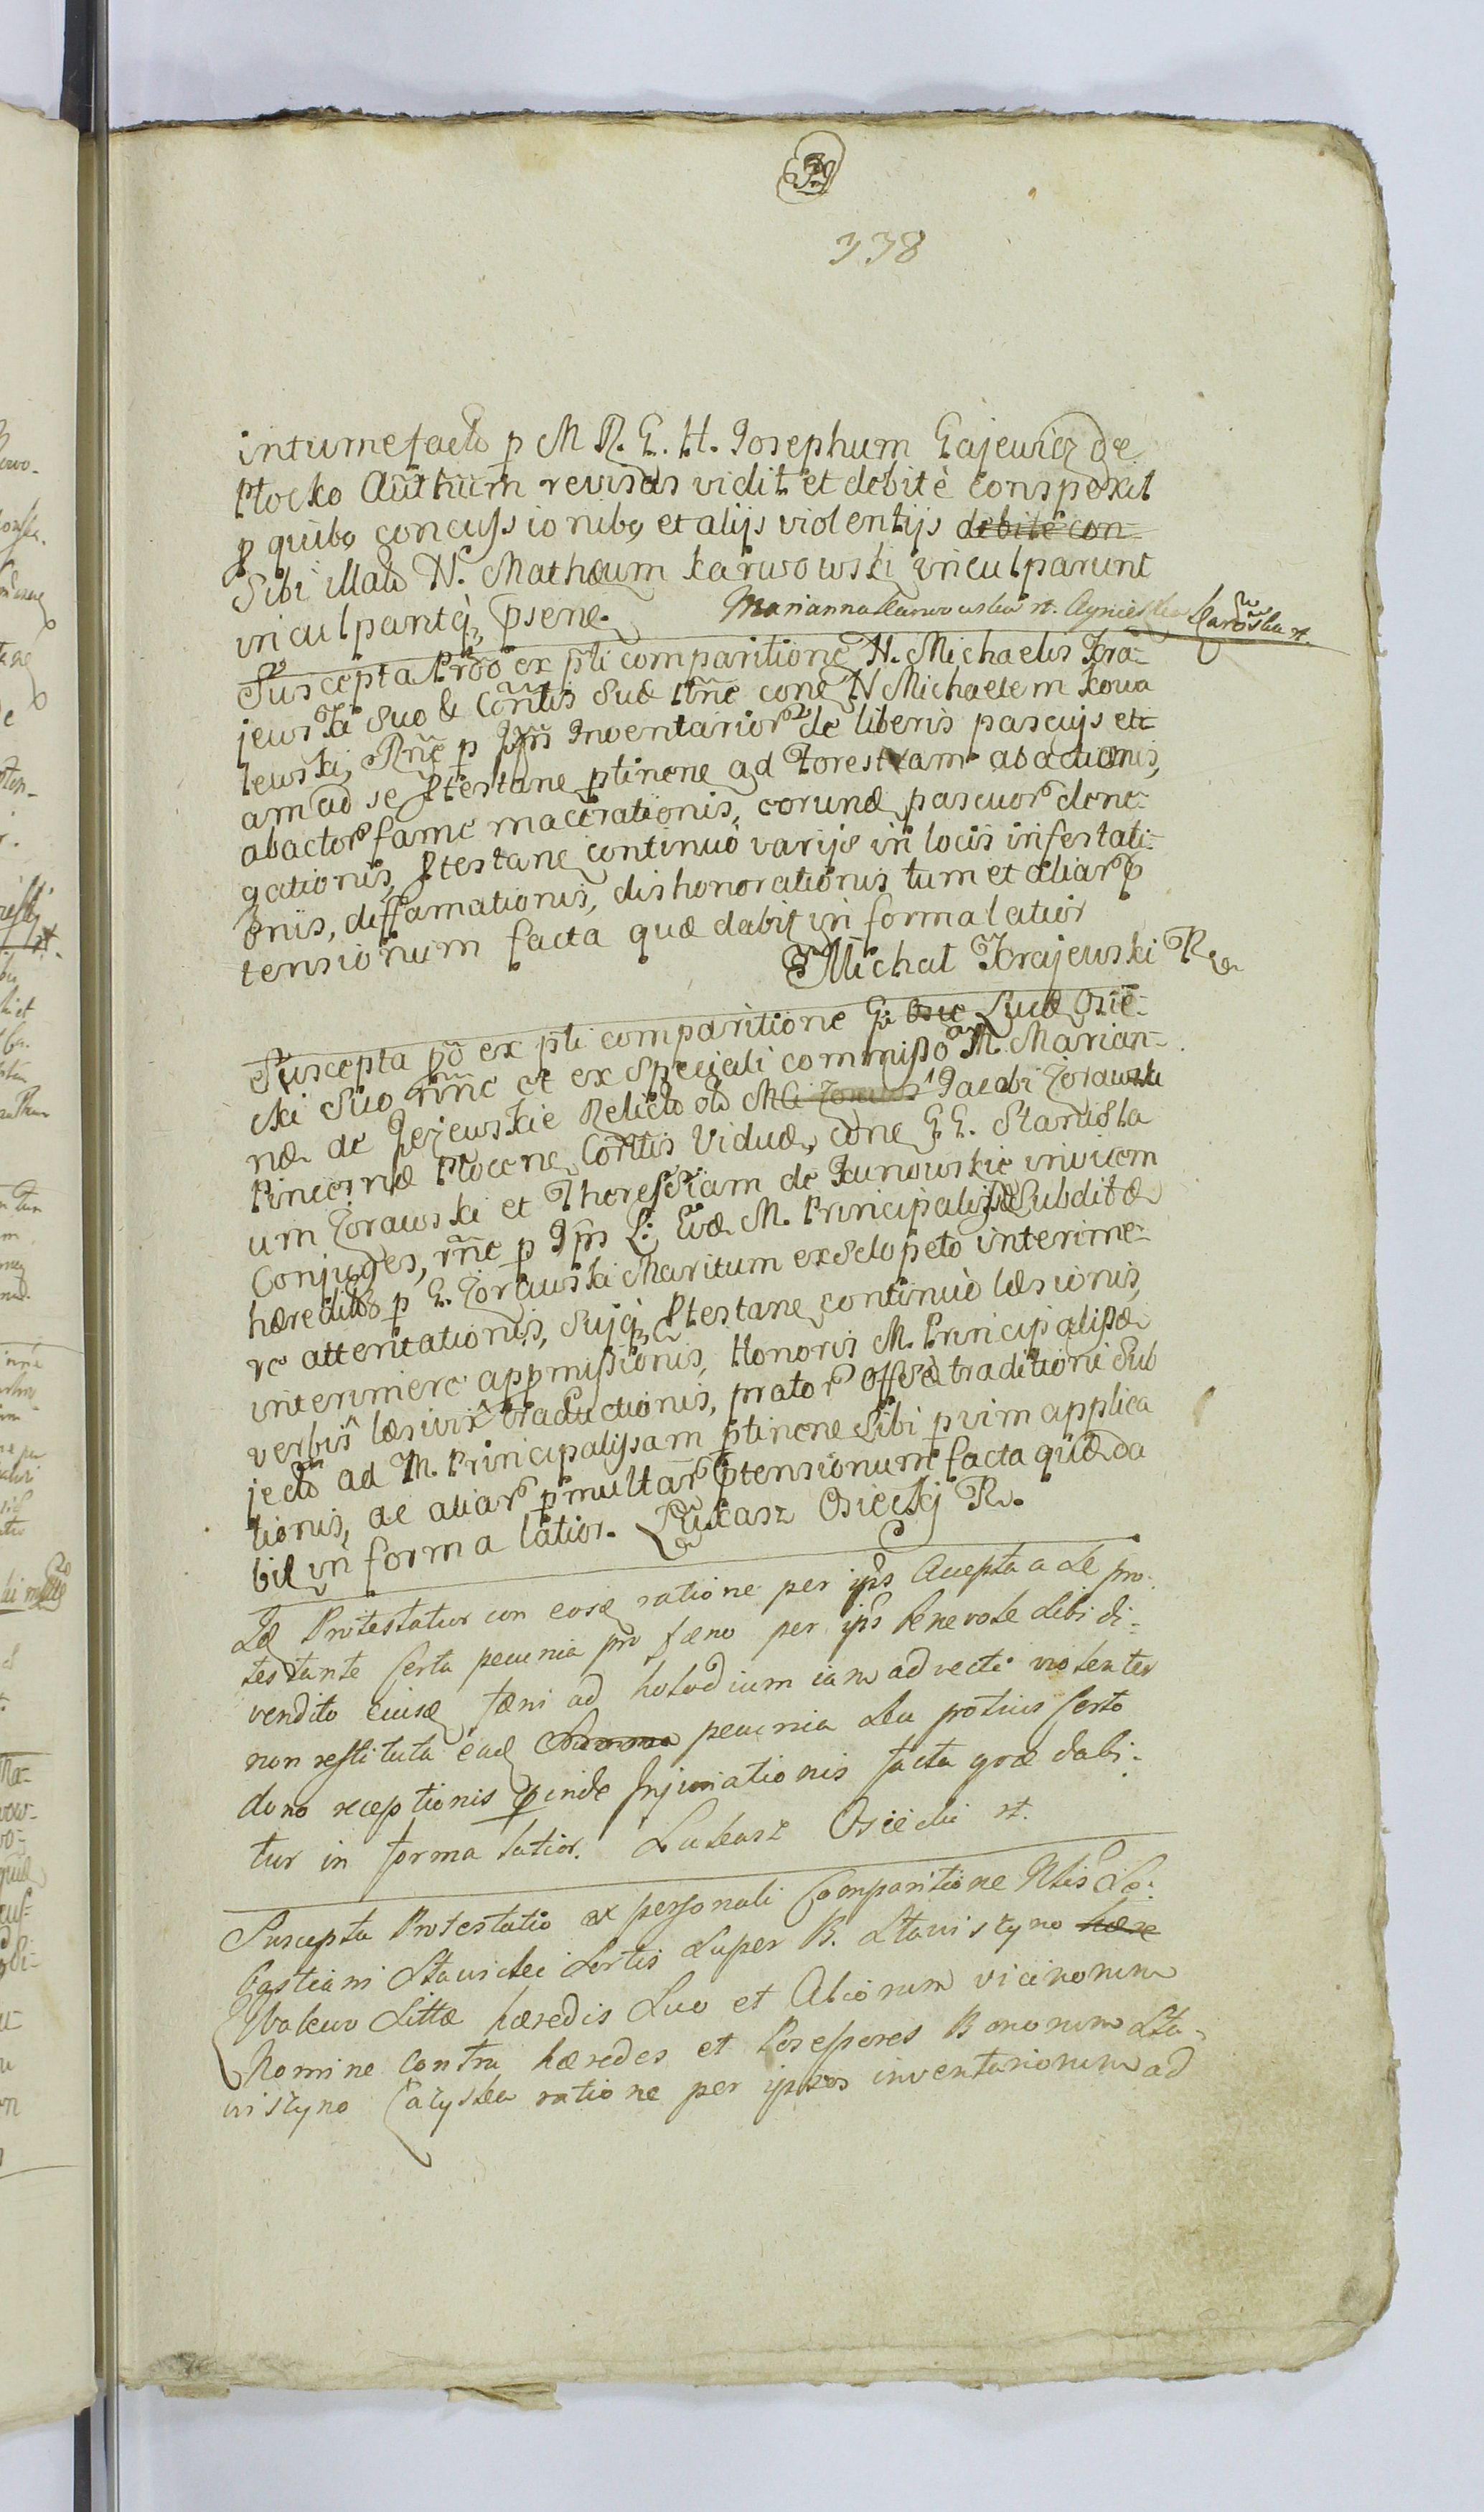 338
intumefacto p M R. G. H. Josephum Gajewicz de
Plocko Authum revisas vidit et debitè conspexit
p quibq concussionibq et alijs violentijs debitè con-
Sibi illato N. Mathæum Karwowski inculparunt
inculpantq psene. Marianna Karwowska st. Agnieszka Karowska st.
Suscepta Prõo ex pli comparitione N. Michaelis Kra-
jewski Suo & Conntis Suæ nñe cone N Michaelem Kowa
lewski, Rñe p Ipm Inventarior de liberis pascujs eti-
am ad se Ptestane ptinene ad Forestam abactionis,
abactor fame macerationis, eorund pascuor dene-
gationis Ptestane continuò varijs in locis infestati-
onis, diffamationis, dishonorationis tum et aliar p
tensionum facta quæ dabit in forma latior
Michal Krajewski R
Suscepta Põ ex pli comparitione G. Osie Lucæ Osie-
cki suo nñe et ex Speciali commisso M. Marian-
næ de Jezewskie Relicto olo M G Jacobi Zorawski
Pincernæ Plocene Contis Viduæ, cone G G. Stanisla
um Zorawski et Theresiam de Kunowskie invicem
Conjuges, rñe p Ipm L: Evæ M. Principalissæ Subditæ
hæreditto p G. Zorawski Maritum exsclopeto interime-
re attentationis, Sujq Ptestane continuò læsionis,
interimere appmissionis, Honoris M. Principalissæ
verbis læsivis traductionis, prator Offsà traditioni Sub
jecto ad M. Principalissam ptinene Sibi p vim applica
tionis, ac aliar pmultar ptensionum facta quæ da
bit in forma latior. Łukasz Osiecki R.
Id Protestatur con eosd ratione per ipss Accepta a de pro-
testante Certa pecunia pro fæno per ipss benevole Sibi di-
vendito eiusd fæni ad holodium iam advecti violenter
non restituta ead Summa pecunia Seu potius Certo
dono receptionis pinde Injuriationis facta quæ dabi-
tur in forma latior. Lukasz Osiecki st.
Suscepta Protestatio ex personali Comparitione Nblis Se-
bastiani Staniskei Sortis Super B. Staniszyno hære
Walewo Sittæ hæredis Suo et Aliorum vicinorum
Nomine Contra hæredes et Possessores Bonorum Sta-
niszyno Cazyska ratione per ipsos inventariorum ad